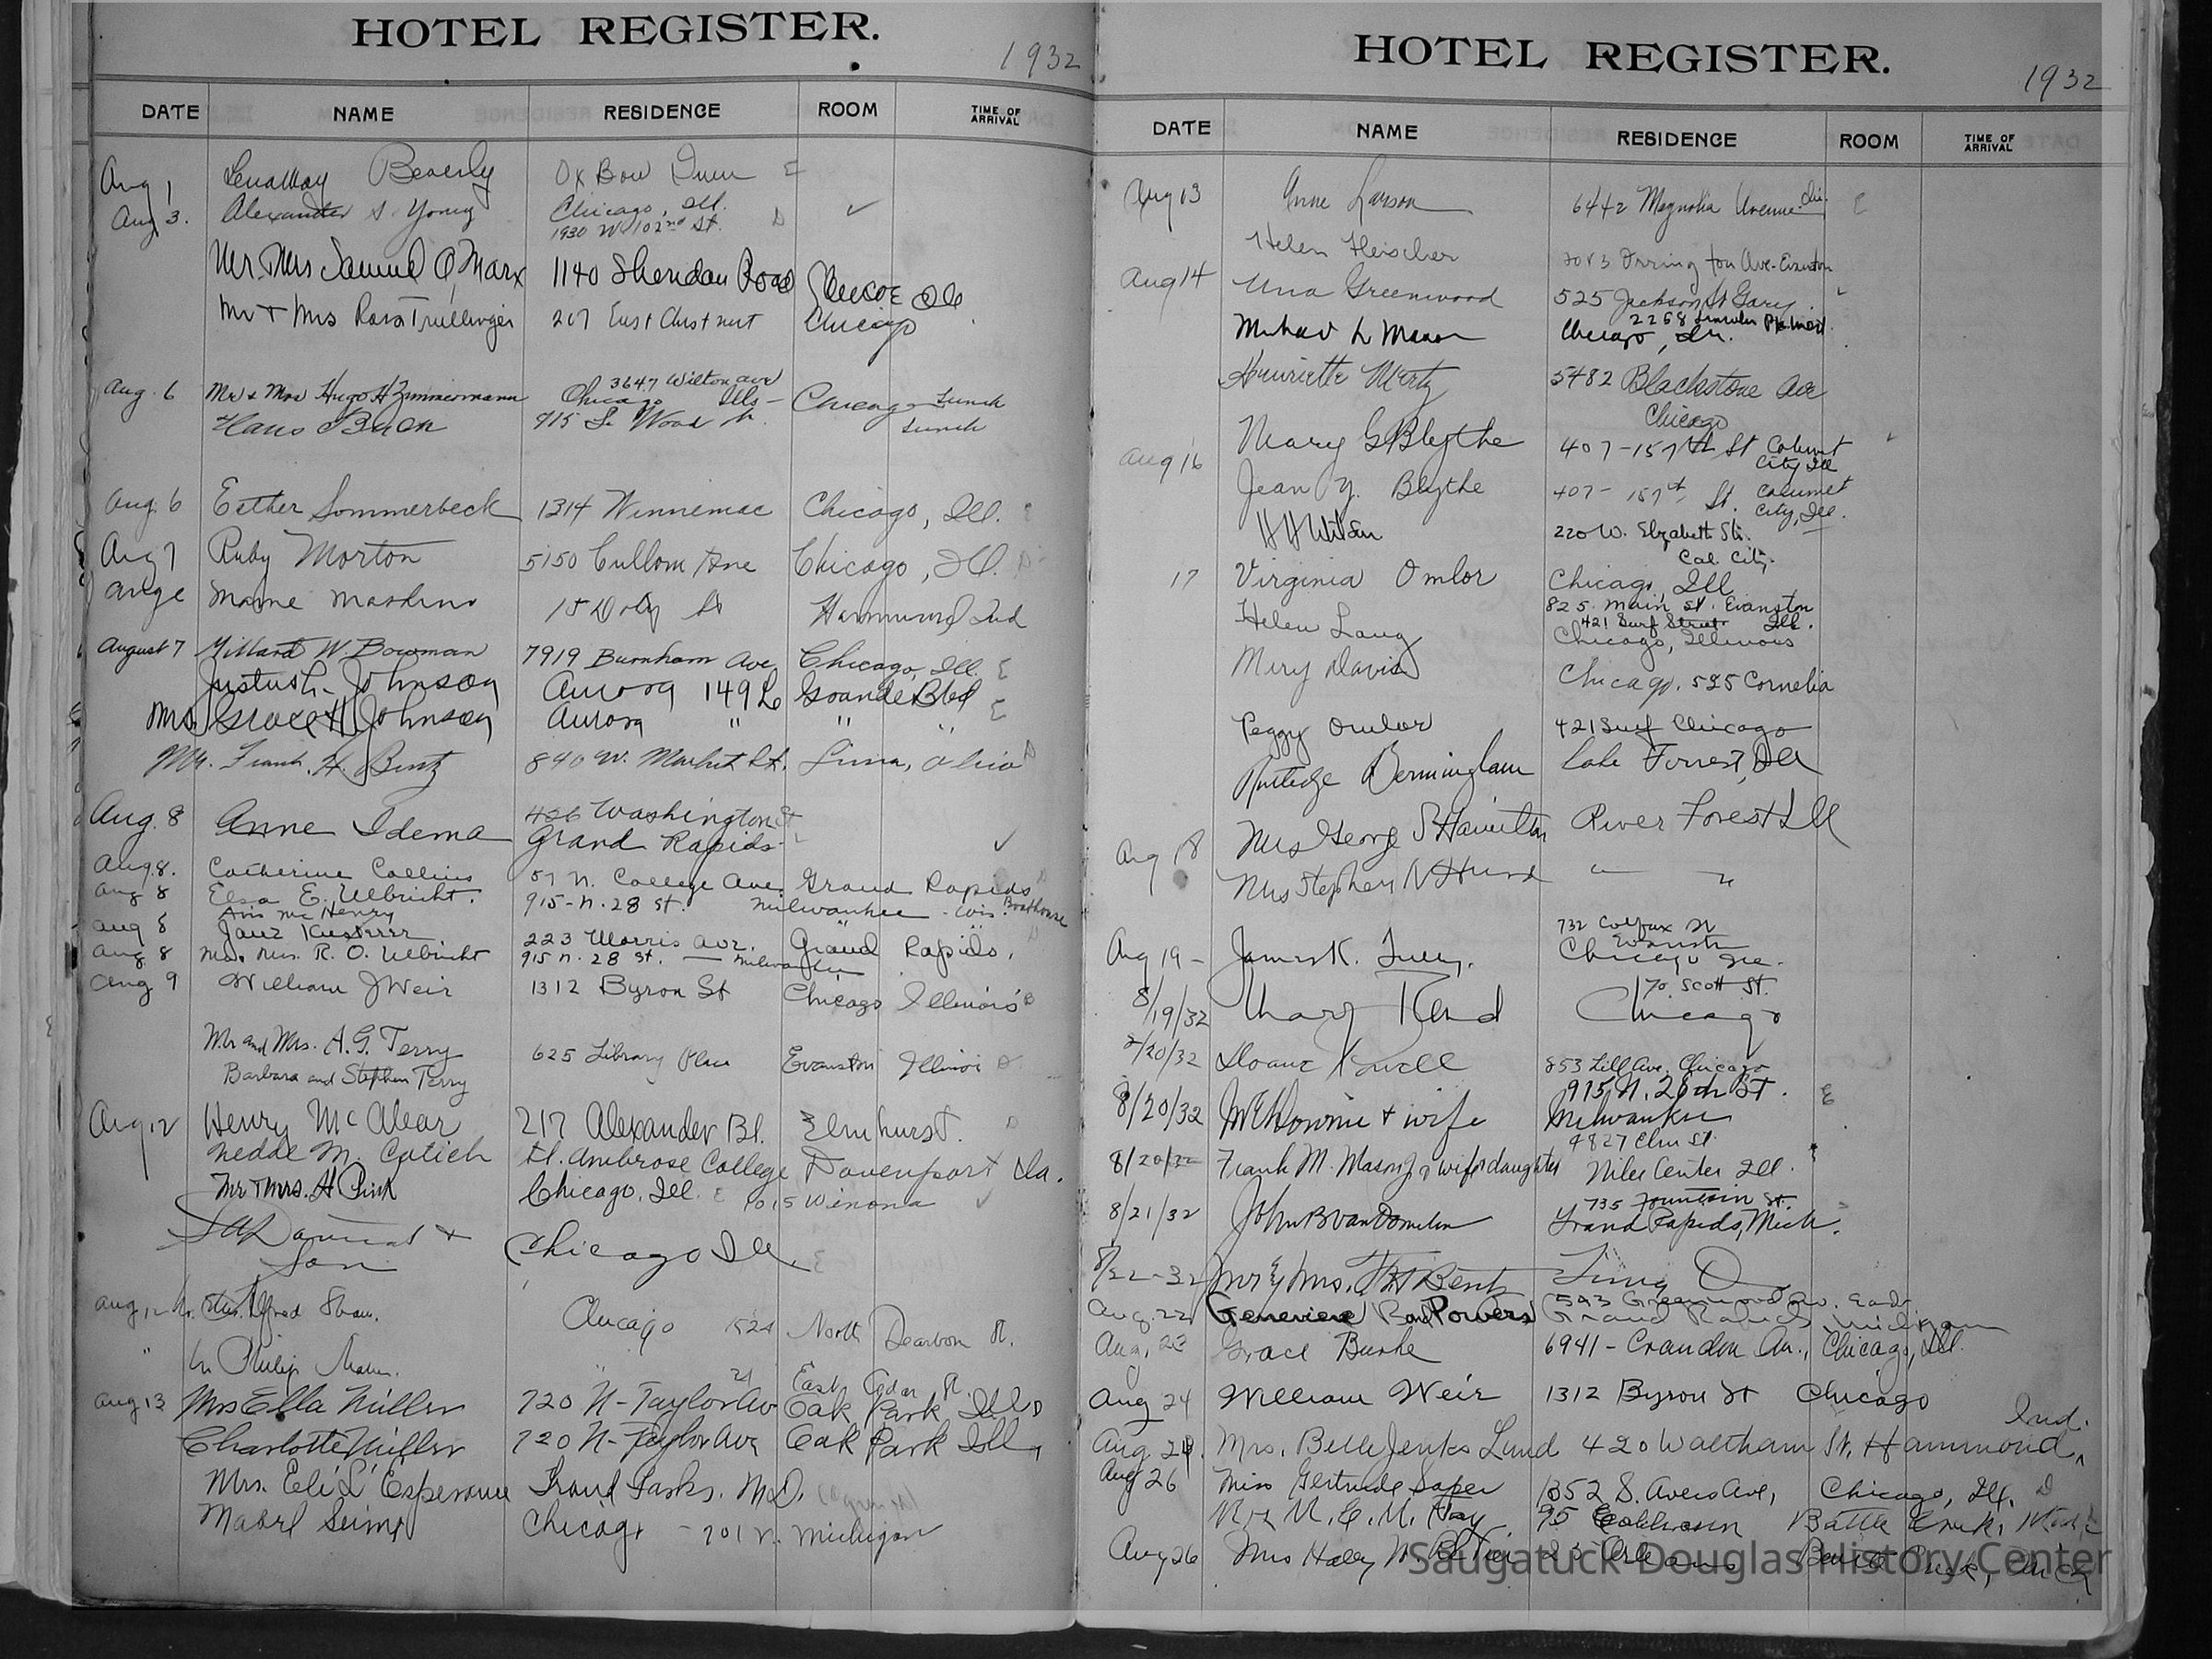 HOTEL REGISTER.
1932
DATE NAME RESIDENCE ROOM TIME OF ARRIVAL
Aug 1 Beverly Ox Bow Inn E
Aug 3. Alexander S. Young Chicago, Ill. ✓
1930 W 102nd St. D
Mr. Mrs Samuel A Marx 1140 Sheridan Road Glencoe Ill
Mr + Mrs Ross Trullinger 207 East Chestnut Chicago
3647 Wilton ave
Aug. 6 Mr & Mrs Hugo H Zimmermann Chicago Ills - Chicago Lunch
Hans Buch 915 So Wood St. Lunch
Aug. 6 Esther Sommerbeck 1314 Winnemac Chicago, Ill.
Aug 7 Ruby Morton 5150 Cullom Ave Chicago, Ill. D
Hammond Ind
August 7 Millard W. Bowman 7919 Burnham Ave Chicago, Ill. E
Justus L. Johnson Aurora 149 Le Grande Blvd E
Mrs. Grace H Johnson Aurora " " " E
Mr. Frank. H. Bentz 890 W. Market St. Lima, Ohio D
426 Washington St
Aug. 8 Anne Idema Grand Rapids - ✓
Aug. 8. Catherine Collins 57 N. College Ave. Grand Rapids
Aug 8 Elsa E. Ulbricht. 915-N. 28 St. Milwaukee - Wis. Boathouse
Ann Mc Henry
Aug 8 Jane Kusterer 223 Morris Ave. Grand Rapids.
Aug 8 Mr. Mrs. R. O. Ulbricht 915 N. 28 St. — Milwaukee
Aug 9 William J Weir 1312 Byron St Chicago Illinois
Mr and Mrs. A. G. Terry 625 Library Place Evanston Illinois D
Barbara and Stephen Terry
Aug 12 Henry McAlear 217 Alexander Bl. Elmhurst. D
Nedde M. Catich St. Ambrose College Davenport Ia.
Mr + Mrs. H Pink Chicago, Ill. E 1015 Winona ✓
Son Chicago Ill. E
Aug 12 Mr. Mrs. Alfred Shaw. Chicago 1524 North Dearborn St.
" Mr Philip " 21 East Cedar St.
Aug 13 Mrs Ella Miller 720 N-Taylor Av Oak Park Ill D
Charlotte Miller 720 N-Taylor Ave Oak Park Ill,
Mrs. Eli L'Esperance Grand Forks. N.D.
Mabel Chicago - 701 N. Michigan
HOTEL REGISTER.
1932
DATE NAME RESIDENCE ROOM TIME OF ARRIVAL
Aug 13 Anne Larson 6442 Magnolia Avenue Chi. E
Helen Fleischer Orrington Ave-Evanston
Aug 14 Una Greenwood 525 Jackson St Gary.
2268 Lincoln Pk. West
Chicago, Ill.
Henriette Mertz 5482 Blackstone Ave
Chicago
Aug 16 Mary G Blythe 407-157th St Calumet City Ill
Jean Y. Blythe 407-157th St. Calumet City, Ill.
H H Wilson 220 W. Elizabeth St.
Cal. City.
17 Virginia Omlor Chicago, Ill
825 Main St. Evanston Ill.
421 Surf Street
Helen Lang Chicago, Illinois
Mary Davis Chicago. 525 Cornelia
Peggy Omlor 421 Surf Chicago
Rutledge Bermingham Lake Forrest, Ill
Aug 18 Mrs George S Hamilton River Forest Ill
Mrs Stephen N Hurd " "
732 Colfax St
Evanston
Aug 19 - James K. Chicago Ill.
70. Scott St.
8/19/32 Chicago
8/20/32 Sloane 853 Lill Ave. Chicago
915 N. 28th St.
8/20/32 & wife Milwaukee E
4827 Elm St.
8/20/32 Frank M. Mason Jr & wife & daughter Niles Center Ill.
735 Fountain St.
8/21/32 John B Van Domelen Grand Rapids, Mich.
8/22-32 Mr & Mrs. F H Bentz Lima O
593 Greenwood Av. East
Aug. 22 Genevieve Powers Grand Rapids Michigan
Aug. 23 Grace Burke 6941 - Crandon Av., Chicago, Ill.
Aug 24 William Weir 1312 Byron St Chicago
Aug. 24. Mrs. Belle Jenks Lund 420 Waltham St. Hammond, Ind.
Aug 26 Miss Gertrude Soper 1352 S. Avers Ave, Chicago, Ill. D
95 Battle Creek, Mich
Aug 26 Mrs Battle Creek, Mich
Saugatuck-Douglas History Center